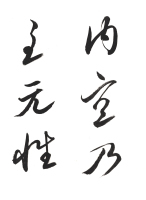 内空乃
主元性